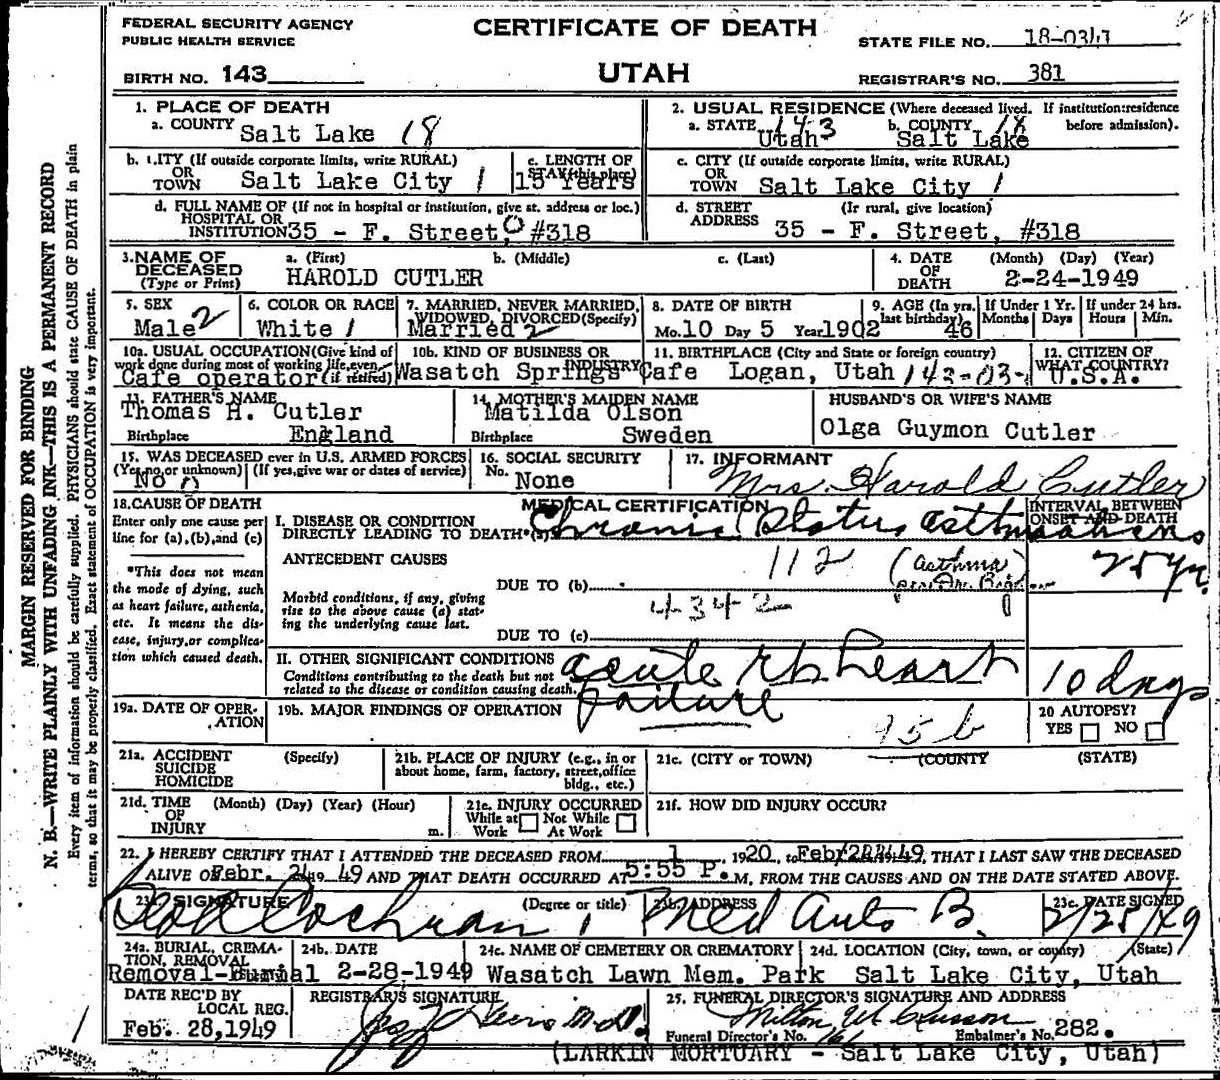 FEDERAL SECURITY AGENCY
PUBLIC HEALTH SERVICE
CERTIFICATE OF DEATH
STATE FILE NO. 18-0341
BIRTH NO. 143
UTAH
REGISTRAR'S NO. 381
MARGIN RESERVED FOR BINDING
N. B.—WRITE PLAINLY WITH UNFADING INK—THIS IS A PERMANENT RECORD
Every item of information should be carefully supplied. PHYSICIANS should state CAUSE OF DEATH in plain
terms, so that it may be properly classified. Exact statement of OCCUPATION is very important.
1. PLACE OF DEATH
a. COUNTY Salt Lake 18
2. USUAL RESIDENCE (Where deceased lived. If institution:residence
before admission).
a. STATE 143 Utah b. COUNTY 18 Salt Lake
b. CITY (If outside corporate limits, write RURAL)
OR
TOWN Salt Lake City 1
c. LENGTH OF
STAY (this place)
15 Years
c. CITY (If outside corporate limits, write RURAL)
OR
TOWN Salt Lake City 1
d. FULL NAME OF (If not in hospital or institution, give st. address or loc.)
HOSPITAL OR
INSTITUTION 35 - F. Street, 0 #318
d. STREET (If rural, give location)
ADDRESS 35 - F. Street, #318
3. NAME OF
DECEASED
(Type or Print)
a. (First) b. (Middle) c. (Last)
HAROLD CUTLER
4. DATE (Month) (Day) (Year)
OF
DEATH 2-24-1949
5. SEX
Male 2
6. COLOR OR RACE
White 1
7. MARRIED, NEVER MARRIED,
WIDOWED, DIVORCED (Specify)
Married 2
8. DATE OF BIRTH
Mo. 10 Day 5 Year 1902
9. AGE (In yrs.
last birthday) 46
If Under 1 Yr.
Months Days
If under 24 hrs.
Hours Min.
10a. USUAL OCCUPATION (Give kind of
work done during most of working life, even
Cafe operator (if retired)
10b. KIND OF BUSINESS OR
INDUSTRY
Wasatch Springs Cafe
11. BIRTHPLACE (City and State or foreign country)
Logan, Utah 143-03-1
12. CITIZEN OF
WHAT COUNTRY?
U.S.A.
13. FATHER'S NAME
Thomas H. Cutler
Birthplace England
14. MOTHER'S MAIDEN NAME
Matilda Olson
Birthplace Sweden
HUSBAND'S OR WIFE'S NAME
Olga Guymon Cutler
15. WAS DECEASED ever in U.S. ARMED FORCES
(Yes, no, or unknown) (If yes, give war or dates of service)
No 0
16. SOCIAL SECURITY
No. None
17. INFORMANT
Mrs. Harold Cutler
18. CAUSE OF DEATH
Enter only one cause per
line for (a), (b), and (c)
*This does not mean
the mode of dying, such
as heart failure, asthenia,
etc. It means the dis-
ease, injury, or complica-
tion which caused death.
MEDICAL CERTIFICATION
I. DISEASE OR CONDITION
DIRECTLY LEADING TO DEATH*(a) Chronic Status asthmaticus
INTERVAL BETWEEN
ONSET AND DEATH
25 yr.
ANTECEDENT CAUSES
112 (asthma
DUE TO (b)
Morbid conditions, if any, giving
rise to the above cause (a) stat-
ing the underlying cause last.
4342
DUE TO (c)
II. OTHER SIGNIFICANT CONDITIONS
Conditions contributing to the death but not
related to the disease or condition causing death.
acute rt. heart
failure
10 days
19a. DATE OF OPER-
ATION
19b. MAJOR FINDINGS OF OPERATION
95b
20 AUTOPSY?
YES NO
21a. ACCIDENT
SUICIDE
HOMICIDE
(Specify)
21b. PLACE OF INJURY (e.g., in or
about home, farm, factory, street, office
bldg., etc.)
21c. (CITY or TOWN) (COUNTY) (STATE)
21d. TIME (Month) (Day) (Year) (Hour)
OF
INJURY m.
21e. INJURY OCCURRED
While at Not While
Work At Work
21f. HOW DID INJURY OCCUR?
22. I HEREBY CERTIFY THAT I ATTENDED THE DECEASED FROM 1 1920, to Feb, THAT I LAST SAW THE DECEASED
ALIVE ON Febr. 24 19 49 AND THAT DEATH OCCURRED AT 5:55 P. M, FROM THE CAUSES AND ON THE DATE STATED ABOVE.
23a. SIGNATURE (Degree or title)
Cochran
23b. ADDRESS
Med Arts B.
23c. DATE SIGNED
2/25/49
24a. BURIAL, CREMA-
TION, REMOVAL
Removal-Burial
24b. DATE
2-28-1949
24c. NAME OF CEMETERY OR CREMATORY
Wasatch Lawn Mem. Park
24d. LOCATION (City, town, or county) (State)
Salt Lake City, Utah
DATE REC'D BY
LOCAL REG.
Feb. 28, 1949
REGISTRAR'S SIGNATURE
25. FUNERAL DIRECTOR'S SIGNATURE AND ADDRESS
Milton W
Funeral Director's No. 161 Embalmer's No. 282.
(LARKIN MORTUARY - Salt Lake City, Utah)